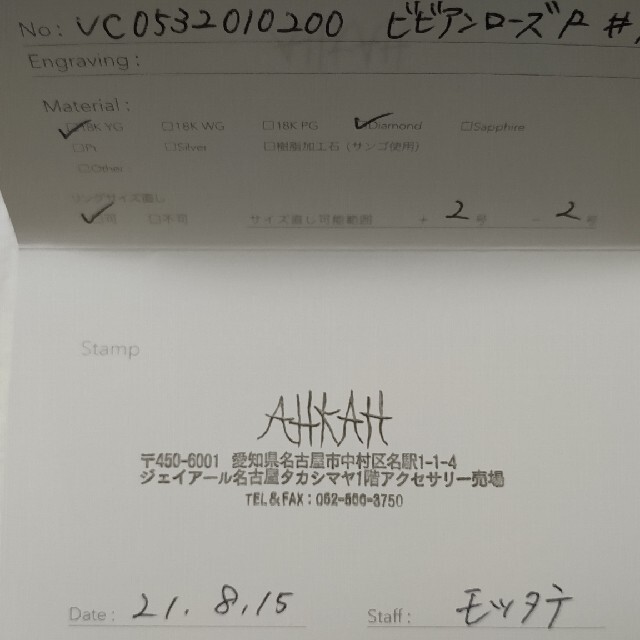 No: VC0532010200 ビビアンローズP #
Engraving:
Material:
☑18K YG ☐18K WG ☐18K PG ☑Diamond ☐Sapphire
☐Pt ☐Silver ☐樹脂加工石 (サンゴ使用)
☐Other
リングサイズ直し
☑可 ☐不可 サイズ直し可能範囲 + 2 号 - 2 号
Stamp
AHKAH
〒450-6001 愛知県名古屋市中村区名駅1-1-4
ジェイアール名古屋タカシマヤ1階アクセサリー売場
TEL&FAX:052-566-3750
Date: 21.8.15 Staff: モツタテ